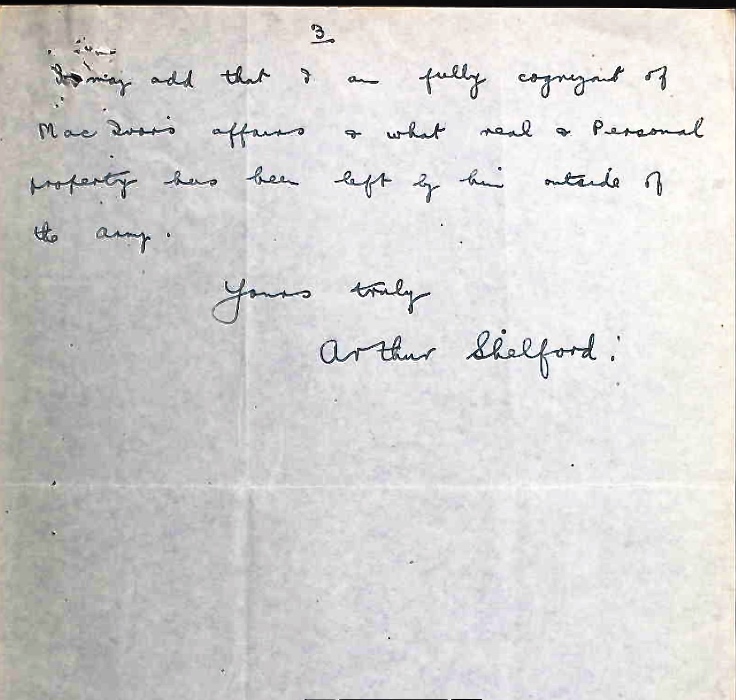 3
I may add that I am fully cognizant of
Mac Ivor's affairs & what real & Personal
property has been left by him outside of
the army.
Yours truly
Arthur Shelford.